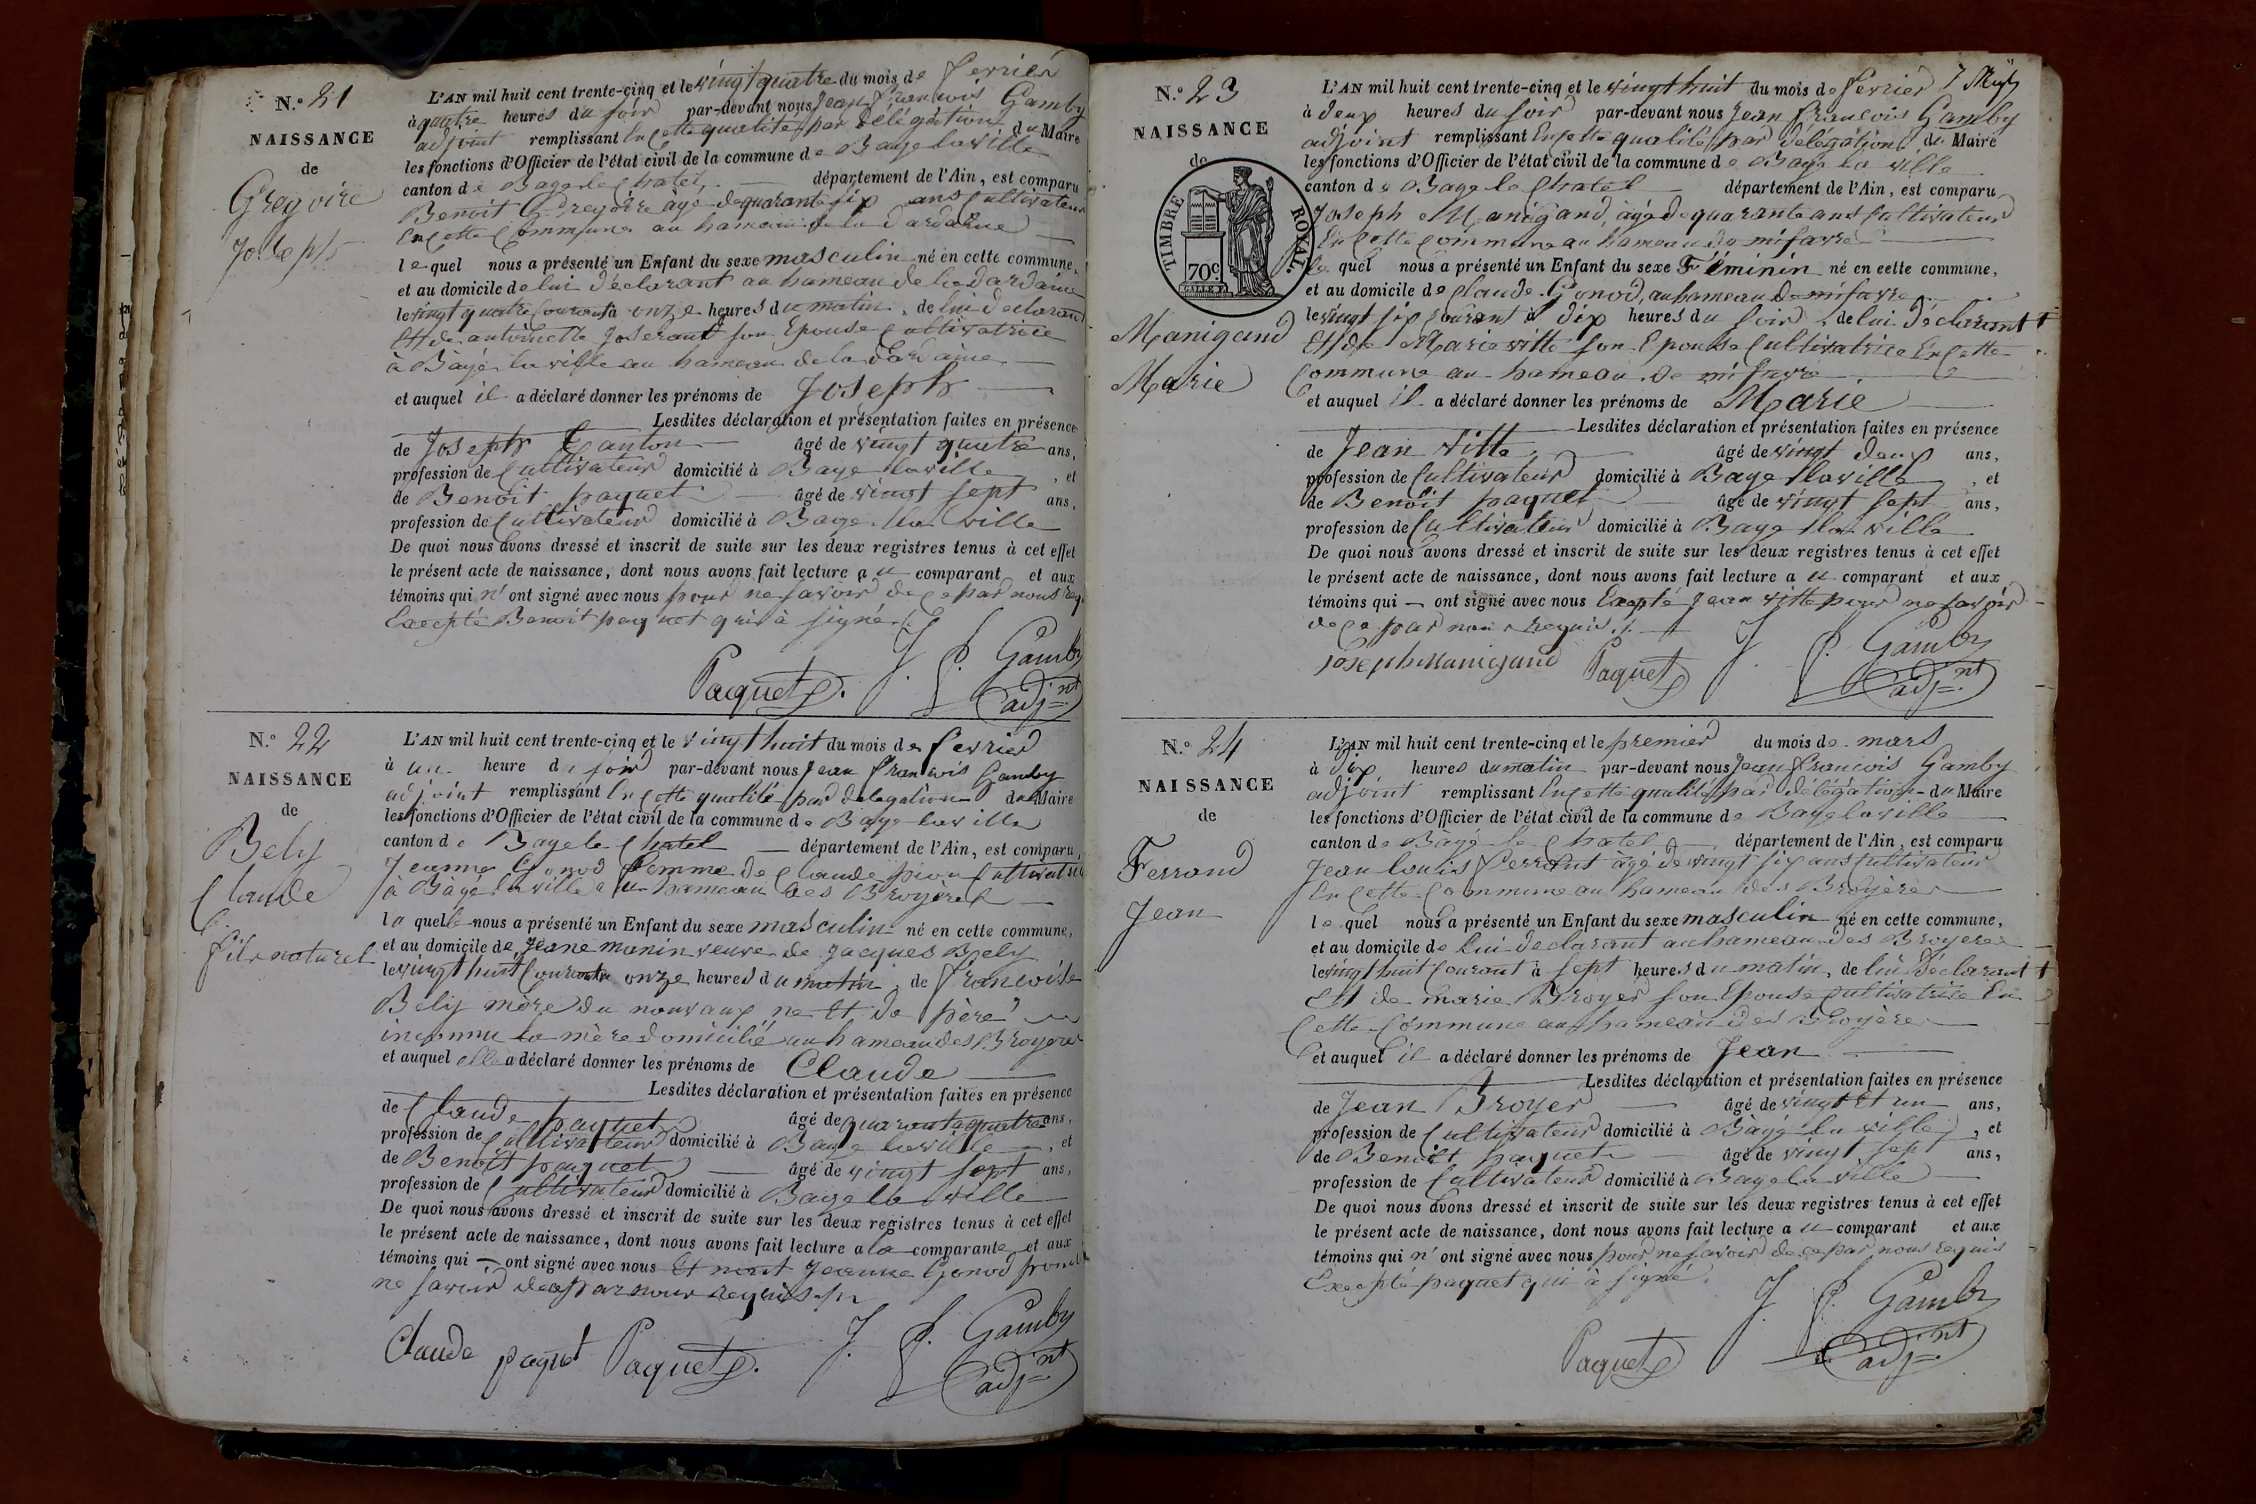 N.º 21
NAISSANCE
de
Gregoire
Joseph
L'AN mil huit cent trente-cinq et le vingt quatre du mois de fevrier
à quatre heures du soir par-devant nous Jean francois Gamby
adjoint remplissant En cette qualité par délégation du Maire
les fonctions d'Officier de l'état civil de la commune de Bage la ville
canton de Bage le Chatel, département de l'Ain, est comparu
Benoit Gregoire age de quarante six ans Cultivateur
En cette Commune au hameau de la dardaine
lequel nous a présenté un Enfant du sexe masculin né en cette commune,
et au domicile de lui déclarant au hameau de la dardaine
le vingt quatre Courant à onze heures du matin, de lui declarant
Et de antoinette Joserant son Epouse Cultivatrice
à Bâgé la ville au hameau de la dardaine
et auquel il a déclaré donner les prénoms de Joseph
Lesdites déclaration et présentation faites en présence
de Joseph Canton âgé de vingt quatre ans,
profession de Cultivateur domicilié à Bage la ville, et
de Benoit paquet âgé de vingt sept ans,
profession de Cultivateur domicilié à Bage la ville
De quoi nous avons dressé et inscrit de suite sur les deux registres tenus à cet effet
le présent acte de naissance, dont nous avons fait lecture au comparant et aux
témoins qui n'ont signé avec nous pour ne savoir de ce par nous req.
Excepté Benoit paquet qui à signé
Paquet J. f. Gamby
adj.nt
N.º 22
NAISSANCE
de
Bely
Claude
fils naturel
L'AN mil huit cent trente-cinq et le vingt huit du mois de fevrier
à un heure du soir par-devant nous Jean francois Gamby
adjoint remplissant En cette qualité par delegation du Maire
les fonctions d'Officier de l'état civil de la commune de Bage la ville
canton de Bage le Chatel département de l'Ain, est comparu,
Jeanne Gonod femme de Claude pion Cultivatrice
à Bage la ville au hameau des Broyères
laquelle nous a présenté un Enfant du sexe masculin né en cette commune,
et au domicile de Jeane manin veuve de Jacques Bely
le vingt huit Courant à onze heures du matin, de francoise
Bely mère du nouveaux ne Et de père
inconnu la mère domicilié au hameau des Broyere
et auquel elle a déclaré donner les prénoms de Claude
Lesdites déclaration et présentation faites en présence
de Claude paquet âgé de quarante quatre ans,
profession de Cultivateur domicilié à Bage la ville, et
de Benoit paquet âgé de vingt sept ans,
profession de Cultivateur domicilié à Bage la ville
De quoi nous avons dressé et inscrit de suite sur les deux registres tenus à cet effet
le présent acte de naissance, dont nous avons fait lecture a la comparante et aux
témoins qui ont signé avec nous Et non Jeanne Gonod pour
ne savoir de ce par nous requis
Claude paquet Paquet J. f. Gamby
adj.nt
N.º 23
NAISSANCE
de
TIMBRE ROYAL.
70c.
Manigand
Marie
L'AN mil huit cent trente-cinq et le vingt huit du mois de fevrier
à deux heures du soir par-devant nous Jean francois Gamby
adjoint remplissant En cette qualité par delégation du Maire
les fonctions d'Officier de l'état civil de la commune de Bage la ville
canton de Bage le Chatel département de l'Ain, est comparu
Joseph Manigand, âgé de quarante ans Cultivateur
En cette Commune au hameau de mifavre
le quel nous a présenté un Enfant du sexe Féminin né en cette commune,
et au domicile de Claude Gonod, au hameau de mifavre
le vingt six courant à dix heures du soir, de lui déclarant
Et de Marie vitte son Epouse Cultivatrice En cette
Commune au hameau de mifavre
et auquel il a déclaré donner les prénoms de Marie
Lesdites déclaration et présentation faites en présence
de Jean vitte âgé de vingt deux ans,
profession de Cultivateur domicilié à Bage la ville, et
de Benoit paquet âgé de vingt sept ans,
profession de Cultivateur domicilié à Bage la ville
De quoi nous avons dressé et inscrit de suite sur les deux registres tenus à cet effet
le présent acte de naissance, dont nous avons fait lecture au comparant et aux
témoins qui ont signé avec nous Excepté Jean vitte pour ne savoir
de ce par nous requis
Joseph Manigand Paquet J. f. Gamby
adj.nt
N.º 24
NAISSANCE
de
Ferrand
Jean
L'AN mil huit cent trente-cinq et le premier du mois de mars
à dix heures du matin par-devant nous Jean francois Gamby
adjoint remplissant En cette qualité par délégation du Maire
les fonctions d'Officier de l'état civil de la commune de Bage la ville
canton de Bâgé le Chatel département de l'Ain, est comparu
Jean louis ferrant agé de vingt six ans Cultivateur
En cette Commune au hameau des Broyères
le quel nous a présenté un Enfant du sexe masculin né en cette commune,
et au domicile de lui declarant au hameau des Broyeres
le vingt huit Courant à sept heures du matin, de lui déclarant
Et de marie Broyer son Epouse Cultivatrice En
Cette Commune au hameau des Broyères
et auquel il a déclaré donner les prénoms de Jean
Lesdites déclaration et présentation faites en présence
de Jean Broyer âgé de vingt et un ans,
profession de Cultivateur domicilié à Bâgé la ville, et
de Benoit paquet âgé de vingt sept ans,
profession de Cultivateur domicilié à Bage la ville
De quoi nous avons dressé et inscrit de suite sur les deux registres tenus à cet effet
le présent acte de naissance, dont nous avons fait lecture au comparant et aux
témoins qui n'ont signé avec nous pour ne savoir de ce par nous requis
Excepté paquet qui à signé.
Paquet J. f. Gamby
adj.nt